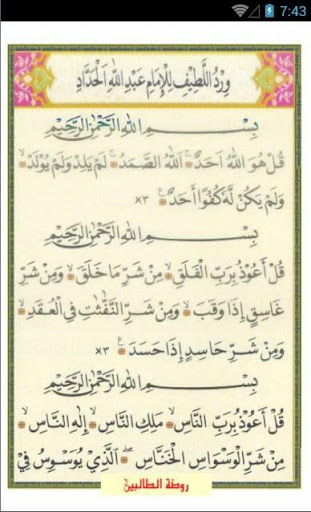 7:43
وِرْدُ اللَّطِيْفِ لِلْإِمَامِ عَبْدِ اللهِ الْحَدَّادِ
بِسْمِ اللهِ الرَّحْمٰنِ الرَّحِيْمِ
قُلْ هُوَ اللهُ اَحَدٌ ۞ اَللهُ الصَّمَدُ ۞ لَمْ يَلِدْ وَلَمْ يُوْلَدْ ۞
وَلَمْ يَكُنْ لَّهٗ كُفُوًا اَحَدٌ ۞ ×٣
بِسْمِ اللهِ الرَّحْمٰنِ الرَّحِيْمِ
قُلْ اَعُوْذُ بِرَبِّ الْفَلَقِ ۞ مِنْ شَرِّ مَا خَلَقَ ۞ وَمِنْ شَرِّ
غَاسِقٍ اِذَا وَقَبَ ۞ وَمِنْ شَرِّ النَّفّٰثٰتِ فِي الْعُقَدِ ۞
وَمِنْ شَرِّ حَاسِدٍ اِذَا حَسَدَ ۞ ×٣
بِسْمِ اللهِ الرَّحْمٰنِ الرَّحِيْمِ
قُلْ اَعُوْذُ بِرَبِّ النَّاسِ ۞ مَلِكِ النَّاسِ ۞ اِلٰهِ النَّاسِ ۞
مِنْ شَرِّ الْوَسْوَاسِ الْخَنَّاسِ ۞ الَّذِيْ يُوَسْوِسُ فِيْ
روضة الطالبين